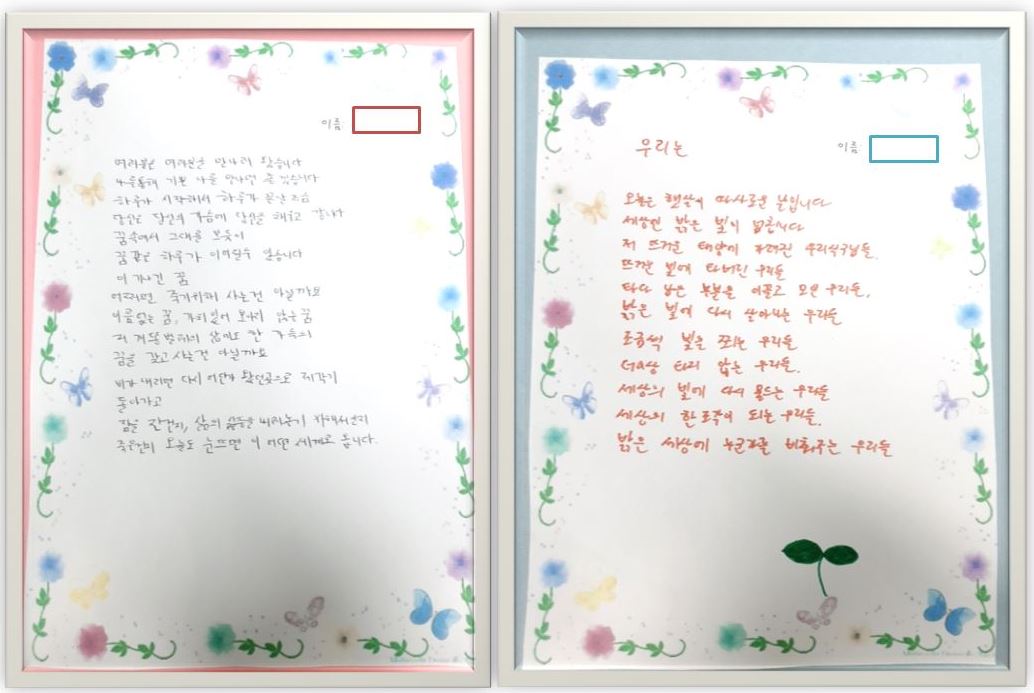 이름:
여러분은 여러분을 만나러 왔습니다
나를통해 기쁜 나를 만나면 좋겠습니다
하루가 시작해서 하루가 끝날즈음
당신은 당신의 가슴에 당신을 채우고 갑니다
꿈속에서 그대를 보듯이
꿈같은 하루가 이어질수 있습니다
이 기나긴 꿈
어쩌면 죽기위해 사는건 아닐까요
이름없는 꿈, 가치있어 보이지 않는 꿈
저 거뭇 의 삶마도 한 가득의
꿈을 갖고 사는건 아닐까요
비가 내리면 다시 어딘가 왔던곳으로 제각기
돌아가고
잠을 잔건지, 삶의 을 내려놓기 위해서인지
죽은건지 오늘도 눈뜨면 이 어떤 세계로 옵니다.
우리는
이름:
오늘은 햇살이 따사로운 날입니다
세상엔 밝은 빛이 넘칩니다
저 뜨거운 태양에 가려진 우리식구님들.
뜨거운 빛에 타버린 우리들
타다 남은 부분을 이끌고 모인 우리들.
밝은 빛에 다시 살아나는 우리들
조금씩 빛을 쪼이는 우리들
더이상 타지 않는 우리들.
세상의 빛에 다시 물드는 우리들
세상의 한 조각이 되는 우리들.
밝은 세상에 누군가를 비춰주는 우리들